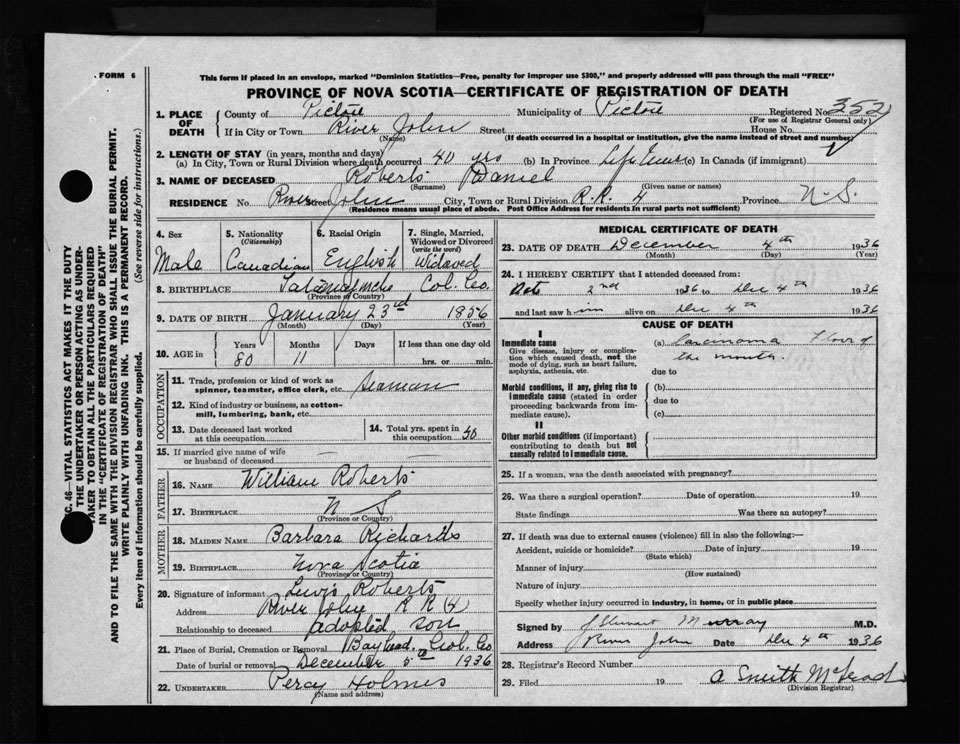 FORM 6
This form if placed in an envelope, marked "Dominion Statistics—Free, penalty for improper use $300," and properly addressed will pass through the mail "FREE"
PROVINCE OF NOVA SCOTIA—CERTIFICATE OF REGISTRATION OF DEATH
1. PLACE OF DEATH County of Pictou Municipality of Pictou Registered No. 352
(For use of Registrar General only)
If in City or Town River John Street House No.
(Name) (If death occurred in a hospital or institution, give the name instead of street and number)
2. LENGTH OF STAY (in years, months and days)
(a) In City, Town or Rural Division where death occurred 40 yrs (b) In Province Life time (c) In Canada (if immigrant)
3. NAME OF DECEASED Roberts Daniel
(Surname) (Given name or names)
RESIDENCE No. River Street John City, Town or Rural Division R.R. 4 Province N-S.
(Residence means usual place of abode. Post Office Address for residents in rural parts not sufficient)
4. Sex 5. Nationality (Citizenship) 6. Racial Origin 7. Single, Married, Widowed or Divorced (write the word)
Male Canadian English Widowed
8. BIRTHPLACE Col. Co.
(Province or Country)
9. DATE OF BIRTH January 23rd 1856
(Month) (Day) (Year)
10. AGE in Years Months Days If less than one day old
80 11 hrs. or min.
OCCUPATION
11. Trade, profession or kind of work as spinner, teamster, office clerk, etc. Seaman
12. Kind of industry or business, as cotton-mill, lumbering, bank, etc.
13. Date deceased last worked at this occupation
14. Total yrs. spent in this occupation 50
15. If married give name of wife or husband of deceased — —
FATHER
16. NAME William Roberts
17. BIRTHPLACE N S
(Province or Country)
MOTHER
18. MAIDEN NAME Barbara Richards
19. BIRTHPLACE Nova Scotia
(Province or Country)
20. Signature of informant Lewis Roberts
Address River John R R (4)
Relationship to deceased adopted son
21. Place of Burial, Cremation or Removal Bayhead. Col. Co
Date of burial or removal December 5th 1936
22. UNDERTAKER Percy Holmes
(Name and address)
MEDICAL CERTIFICATE OF DEATH
23. DATE OF DEATH December 4th 1936
(Month) (Day) (Year)
24. I HEREBY CERTIFY that I attended deceased from:
Oct. 2nd 1936 to Dec 4th 1936
and last saw him alive on Dec 4th 1936
CAUSE OF DEATH
I
Immediate cause (a) Carcinoma Floor of
Give disease, injury or complication which caused death, not the mode of dying, such as heart failure, asphyxia, asthenia, etc.
the mouth.
due to
Morbid conditions, if any, giving rise to immediate cause (stated in order proceeding backwards from immediate cause).
(b)
due to
(c)
II
Other morbid conditions (if important) contributing to death but not causally related to immediate cause.
25. If a woman, was the death associated with pregnancy?
26. Was there a surgical operation? Date of operation 19
State findings Was there an autopsy?
27. If death was due to external causes (violence) fill in also the following:—
Accident, suicide or homicide? Date of injury 19
(State which)
Manner of injury
(How sustained)
Nature of injury
Specify whether injury occurred in industry, in home, or in public place
Signed by J Stewart Murray M.D.
Address River John Date Dec 4th 1936
28. Registrar's Record Number
29. Filed 19 A Smith
(Division Registrar)
C. 46—VITAL STATISTICS ACT MAKES IT THE DUTY
THE UNDERTAKER OR PERSON ACTING AS UNDER-
TAKER TO OBTAIN ALL THE PARTICULARS REQUIRED
IN THE "CERTIFICATE OF REGISTRATION OF DEATH"
AND TO FILE THE SAME WITH THE DIVISION REGISTRAR WHO SHALL ISSUE THE BURIAL PERMIT.
WRITE PLAINLY WITH UNFADING INK. THIS IS A PERMANENT RECORD.
Every item of information should be carefully supplied. (See reverse side for instructions.)